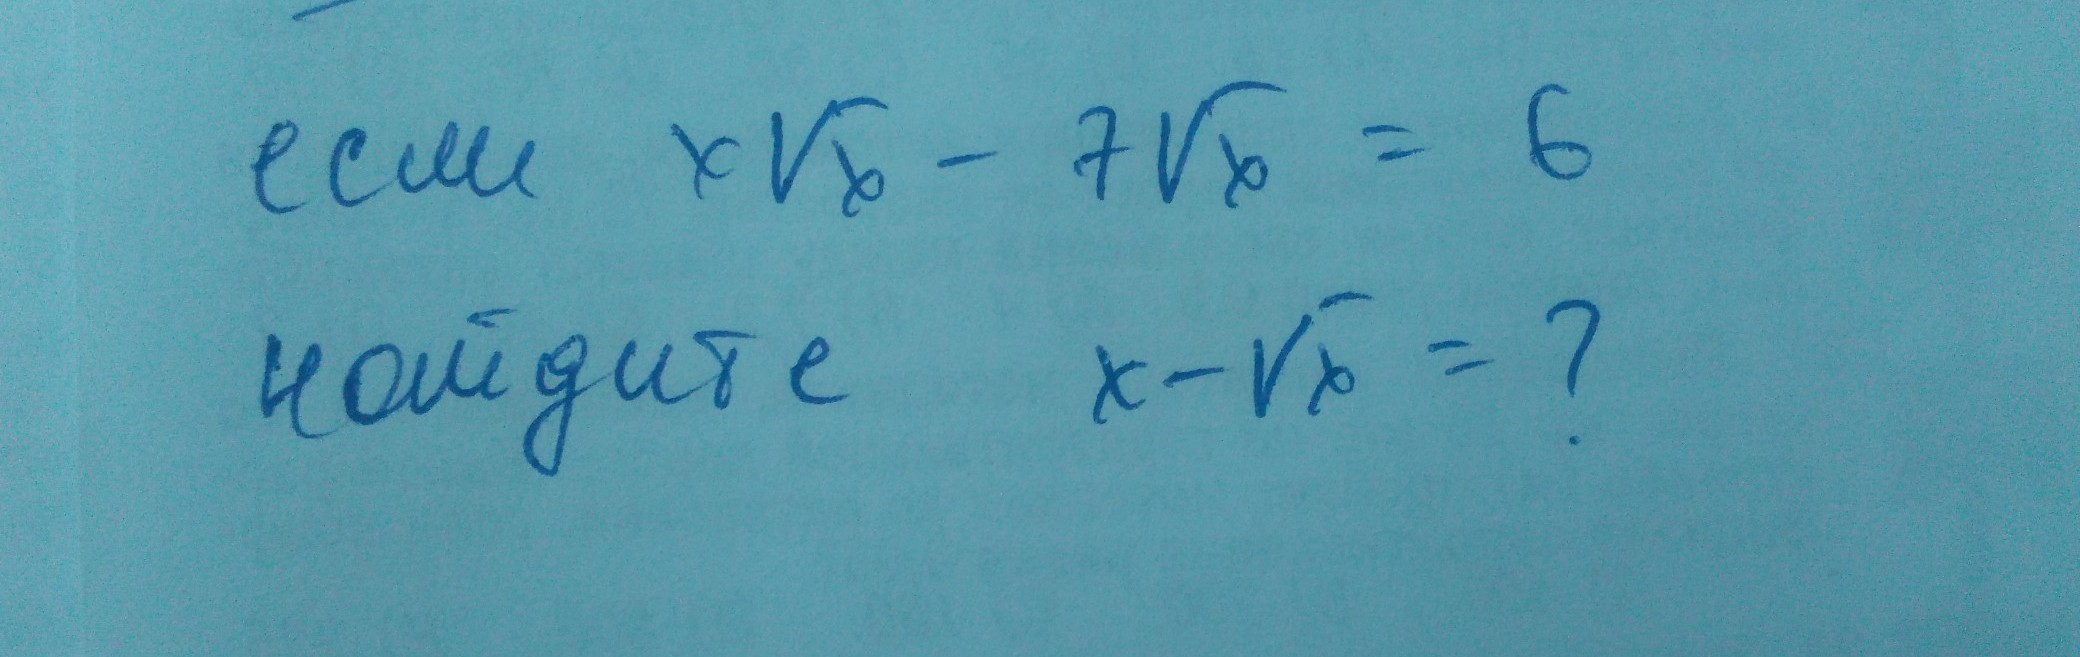 если x√x - 7√x = 6
найдите x-√x = ?